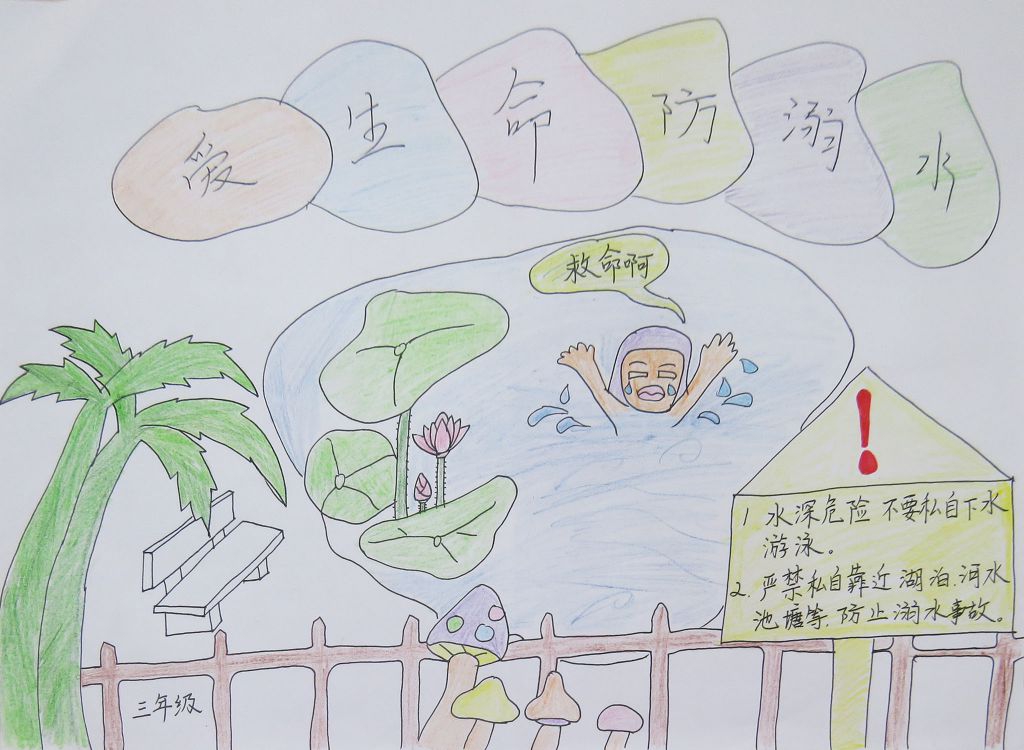 爱生命防溺水
救命啊
！
1 水深危险 不要私自下水
游泳。
2. 严禁私自靠近湖泊.河水
池塘等.防止溺水事故。
三年级